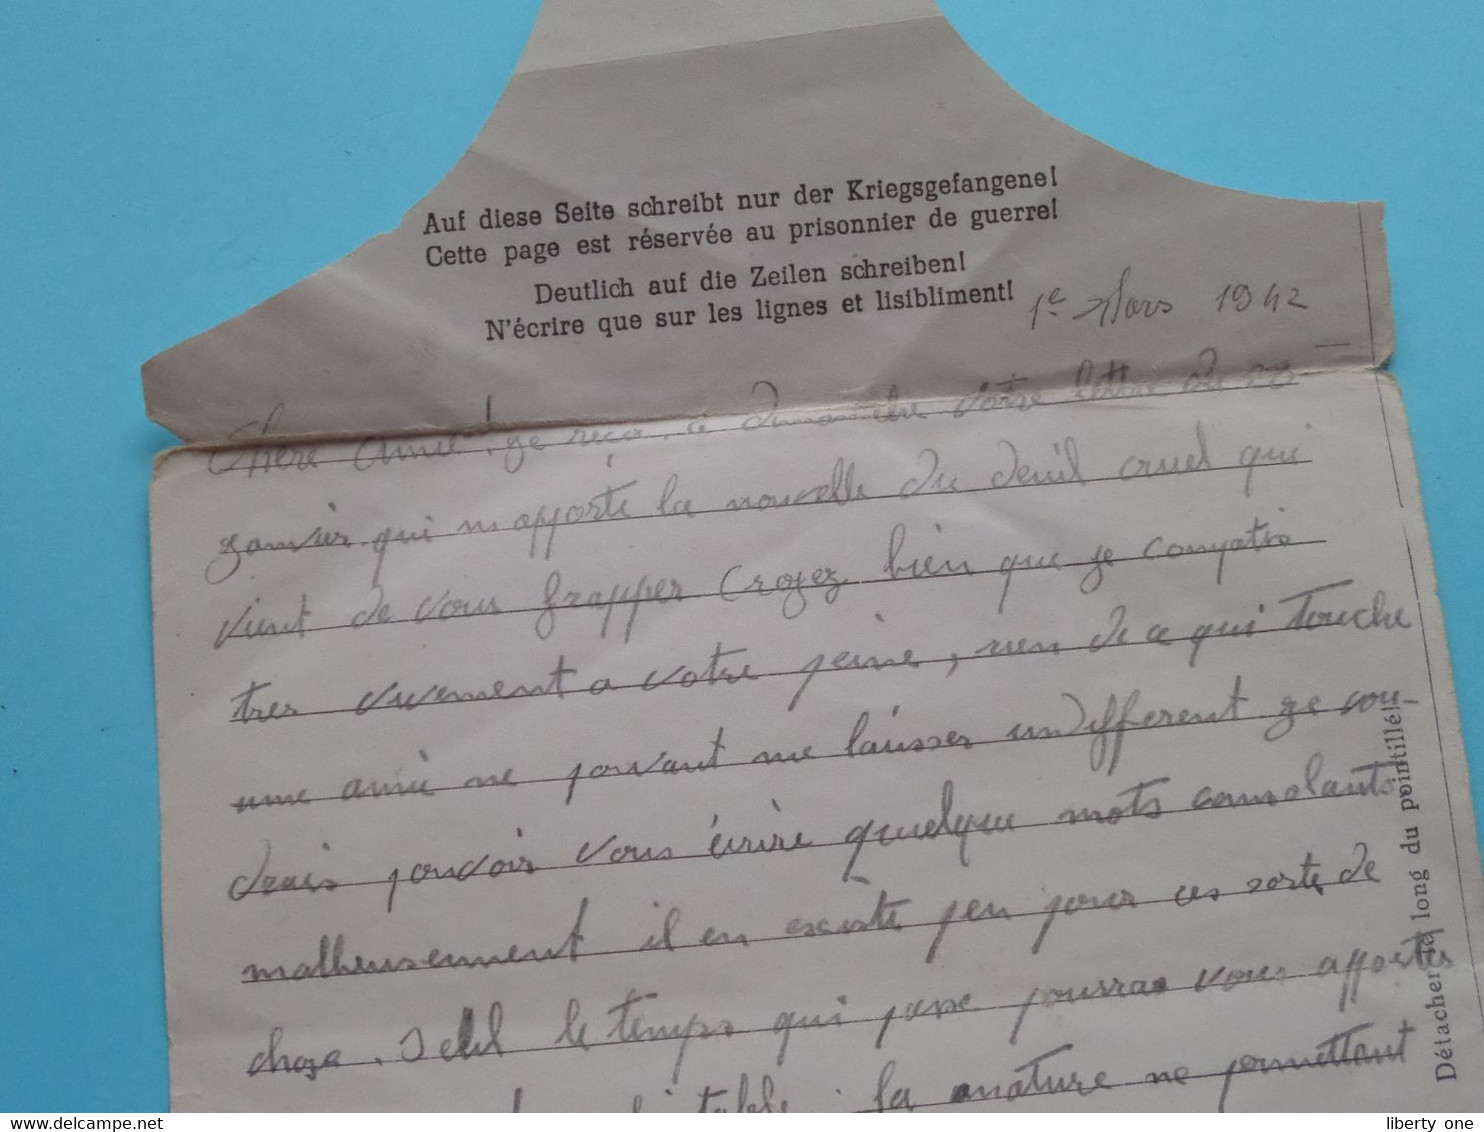 Auf diese Seite schreibt nur der Kriegsgefangene!
Cette page est réservée au prisonnier de guerre!
Deutlich auf die Zeilen schreiben!
N'écrire que sur les lignes et lisibliment!
1e Mars 1942
Chère Amie! je reçois ce dimanche votre lettre du 20
janvier qui m'apporte la nouvelle du deuil cruel qui
vient de vous frapper Croyez bien que je compatis
tres vivement a votre peine, rien de ce qui touche
une amie ne pouvant me laisser indifferent je vou-
drais pouvoir vous écrire quelque mots consolants
malheusemement il en existe peu pour ces sorte de
chose. Seul le temps qui passe pourra vous apporter
la nature ne permettant
Détacher le long du pointillé!
liberty one